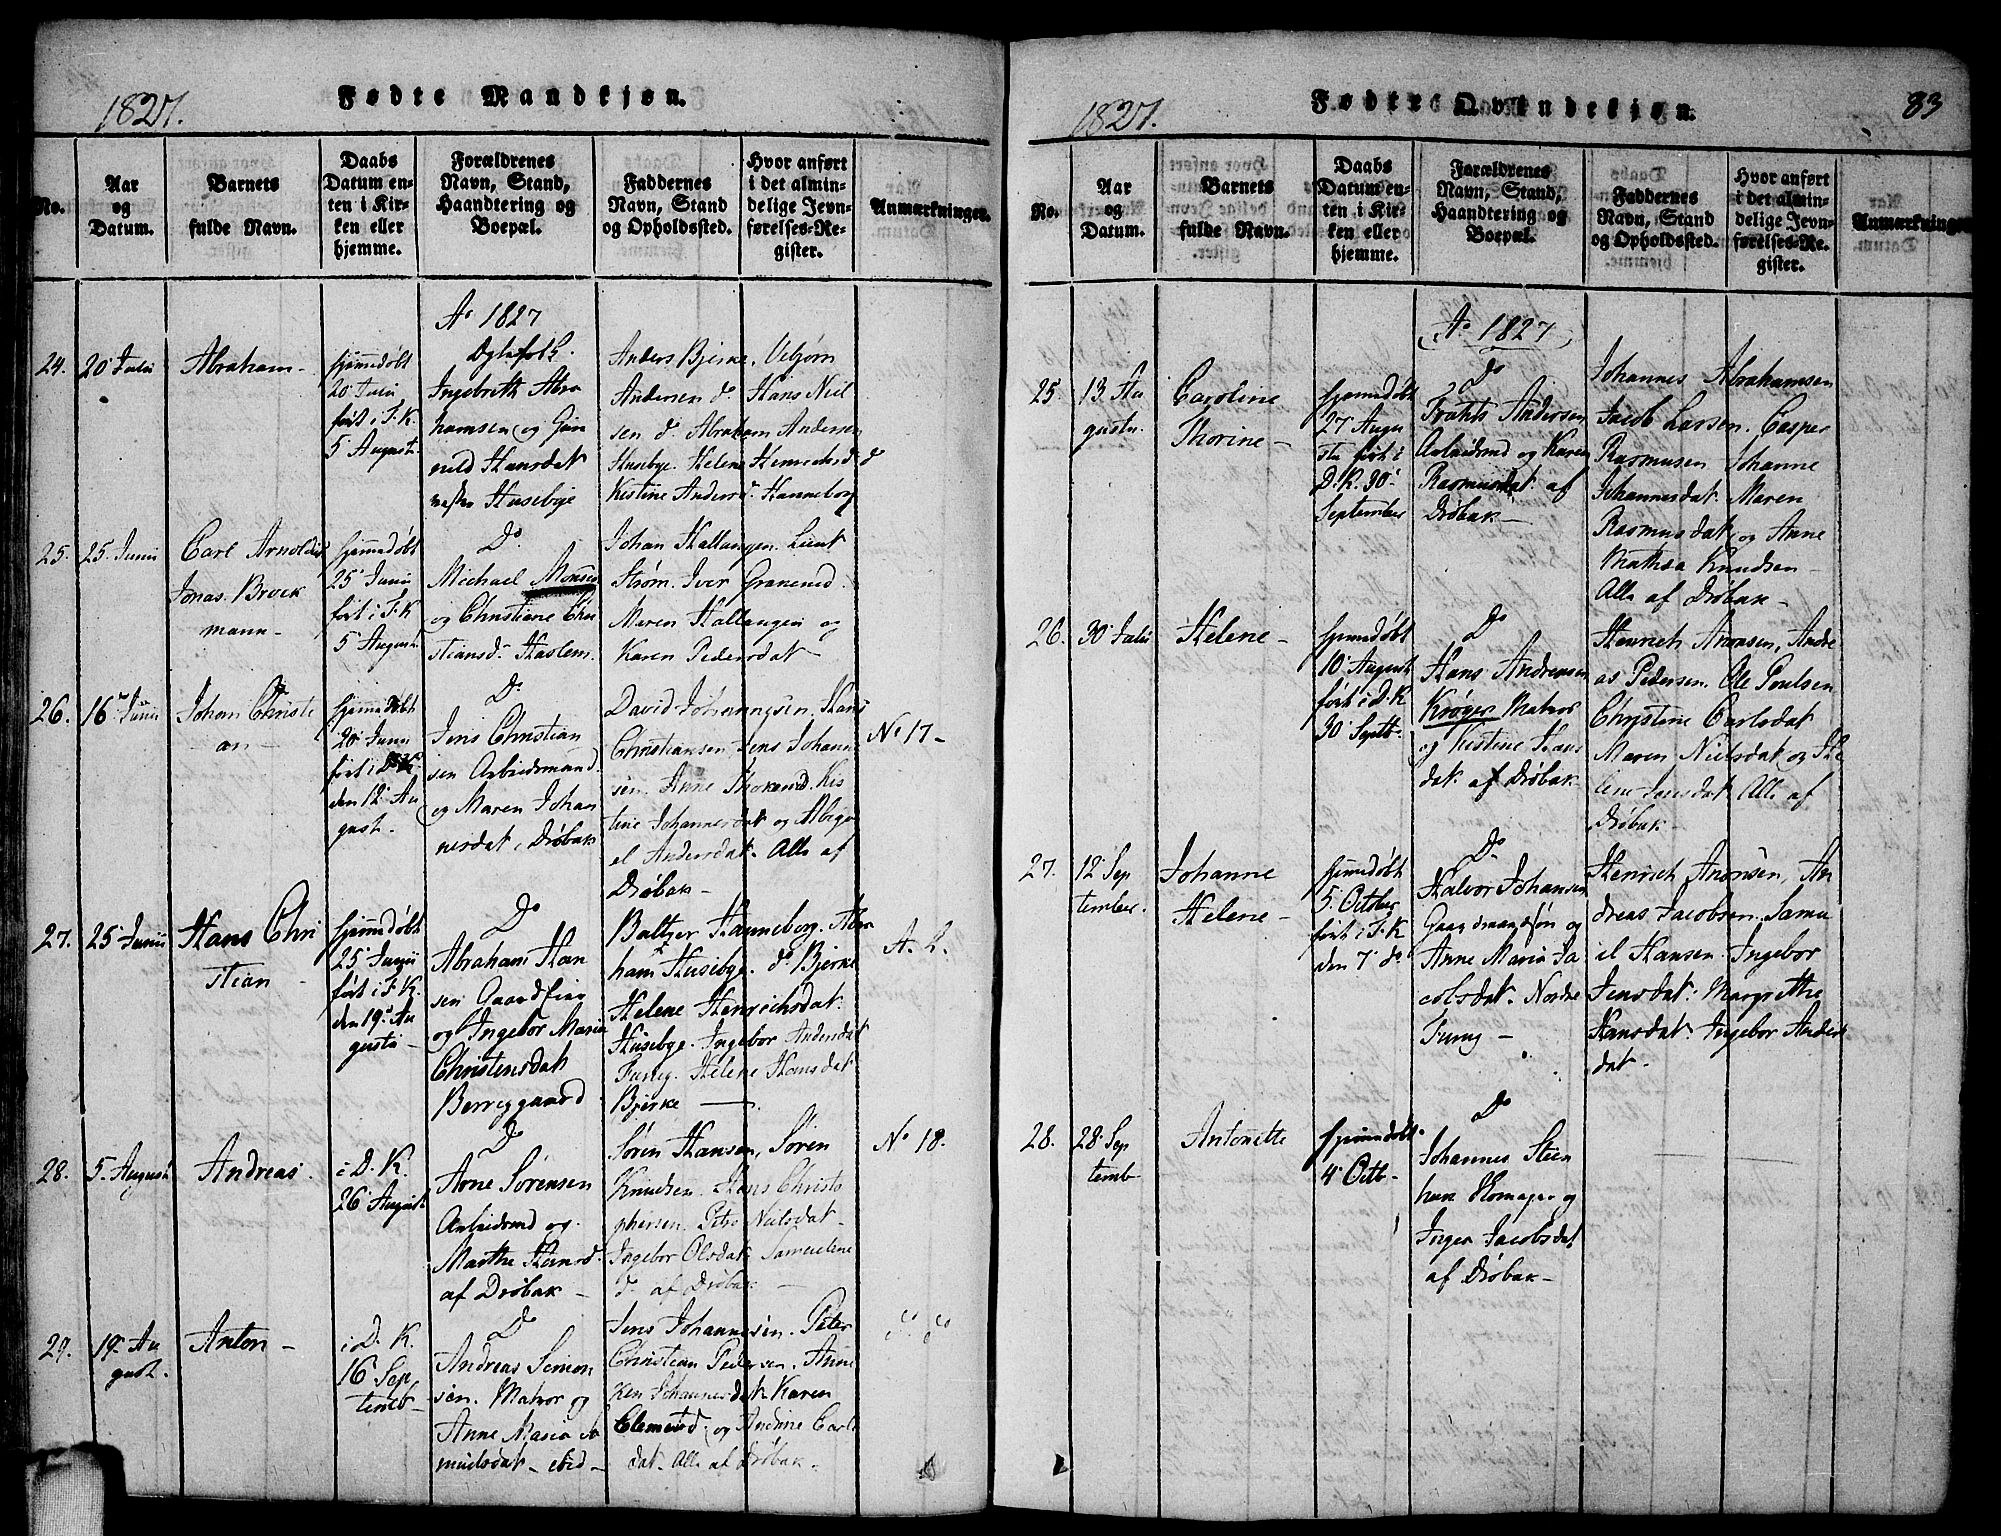 1827.
Fødte Mandkjøn.
No.
Aar
og
Datum.
Barnets
fulde Navn.
Daabs
Datum en-
ten i Kir-
ken eller
hjemme.
Forældrenes
Navn, Stand,
Haandtering og
Boepæl.
Faddernes
Navn, Stand
og Opholdssted.
Hvor anført
i det almin-
delige Jevn-
førelses-Re-
gister.
Anmærkninger.
Ao 1827
24.
20 Julii
Abraham
hjemmedøbt
20 Julii
ført i F. K.
5 August.
Ægtefolk.
Ingebreth Abra
hamsen og Gun
nild Hansdat
Husebye
Anders Bjerke, Vebjørn
Andersen do Hans Niel
sen do Abraham Andersen
Husebye. Helene Henrichsd do
Kestine Andersd. Hanneborg
25.
25 Junii
Carl Arnoldus
Jonas Brock
mann
hjemmedøbt
25 Junii
ført i F. K
5 August
Do
Michael Monsen
og Christiane Chri
stiansd. Haslem.
Johan Hallangen. Lieut
Strøm. Iver Graneeied.
Maren Hallangen og
Karen Pedersdat
26.
16 Junii
Johan Christi
an
hjemmedøbt
20 Junii
ført i D K
den 12 Au
gust.
Do
Jens Christian
sen Arbeidsmand
og Maren Johan
nesdat, Drøbak
David Johannesen. Hans
Christiansen Jens Johann
sen. Anne Kes
tine Johannesdat og Abiga
el Andersdat. Alle af
Drøbak
No 17
27.
25 Junii
Hans Chri
stian
hjemmedøbt
25 Junii
ført i F. K.
den 19 Au
gusti
Do
Abraham Han
sen
og Ingebor Maria
Christensdat
Berreggaard
Baltzer Hanneborg. Abra
ham Husebye. do Bjerke
Helene Henrichsdat.
Husebye. Ingebor Andersdat
Fureg. Helene Hansdat
Bjerke
A. L.
28.
5 August
Andreas.
i D. K.
26 August
Do
Arne Sørensen
Arbeidsmd og
Marthe Hansd.
af Drøbak
Søren Hansen, Søren
Knudsen. Hans Christo
phersen. Nielsdat
Ingebor Olsdat Samuelene
do af Drøbak
No 18.
29.
19 Au
gust.
Anton
i D. K.
16 Sep
temb
Do
Andreas Simon
sen. Matros og
Anne Maria Sa
muelsdat ibid
Jens Johannesen. Peter
Christian Pedersen. Anne
Ken Johannesdat Karen
Clemensd. og Andrine Carls
dat. Alle af Drøbak.
1827.
Fødte Qvindekjøn.
83
No.
Aar
og
Datum.
Barnets
fulde Navn.
Daabs
Datum en-
ten i Kir-
ken eller
hjemme.
Forældrenes
Navn, Stand,
Haandtering og
Boepæl.
Faddernes
Navn, Stand
og Opholdssted.
Hvor anført
i det almin-
delige Jevn-
førelses-Re-
gister.
Anmærkninger
Ao 1827
25
13 Au
gustii
Caroline
Thorine
hjemmedøbt
27 Augu
sti ført i
D. K. 30
September
Do
Andersen
Arbeidsmd og Karen
Rasmusdat af
Drøbak
Johannes Abrahamsen
Jacob Larsen. Casper
Rasmusen Johanne
Johannesdat. Maren
Rasmusdat og Anne
Mathea Knudsen
Alle af Drøbak
26.
30 Julii
Helene
hjemmedøbt
10 August
ført i D. K
30 Septb
Do
Hans Andreasen
Krøyer Matros
og Kestine Hans
dat af Drøbak
Henrich Aronsen, Andre
as Pedersen. Ole Poulsen
Christine Carlsdat
Maren Nielsdat og He
lene Jensdat Alle af
Drøbak
27.
12 Sep
tember.
Johanne
Helene
hjemmedøbt
5 October
ført i F. K
den 7 do
Do
Halvor Johansen
Gaardmandsøn og
Anne Maria Ja
cobsdat. Nordre
Henrich Aronsen, An
dreas Jacobsen. Samu
el Hansen. Ingebor
Jensdat. Margrethe
Hansdat. Ingebor Anders
dat.
28.
28 Sep
temb
Antonette
hjemmedøbt
4 Octb
Do
Johannes Steen
og
Inger Jacobsdat
af Drøbak